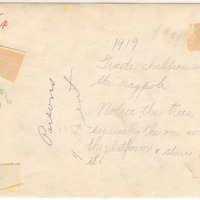 1919
Grade children
the maypole
Notice the trees
especially the one
the platform & stairs
it.
Parsons